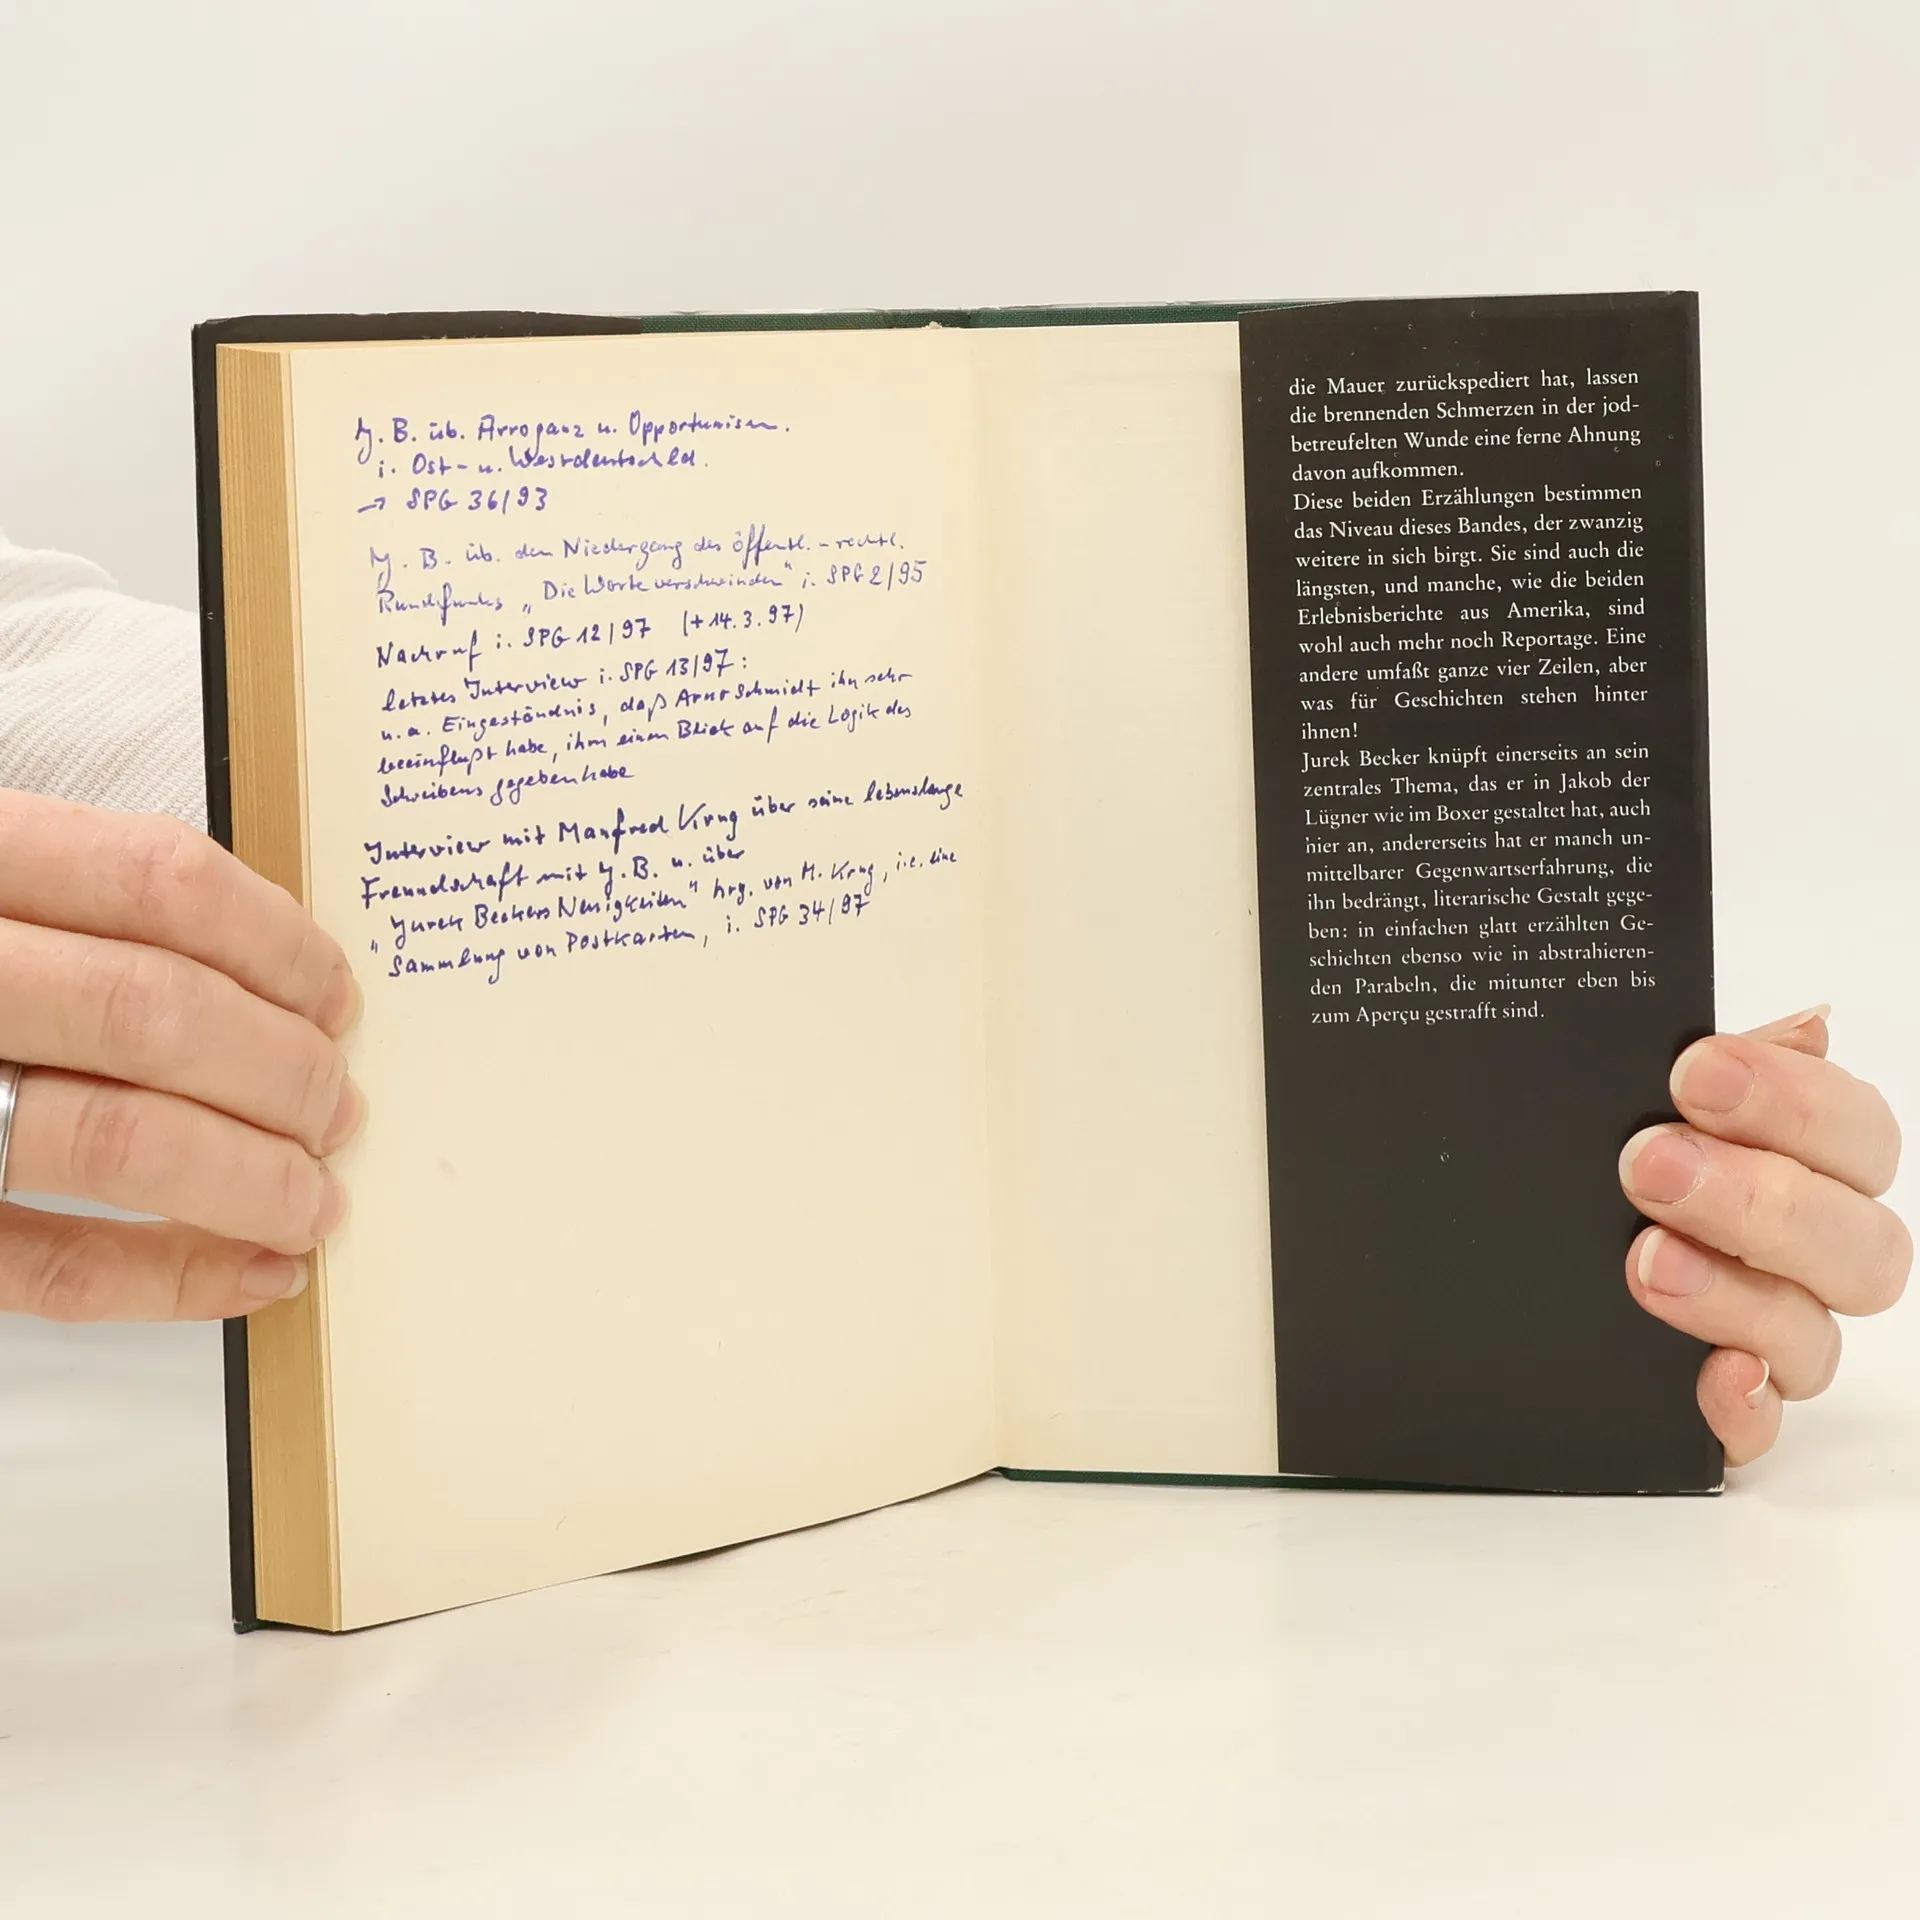 J. B. üb. Arroganz u. Opportunism.
i. Ost- u. Westdeutschld.
→ SPG 36/93
J. B. üb. den Niedergang des öffentl.-rechtl.
Rundfunks „Die Worte verschwinden“ i. SPG 2/95
Nachruf i. SPG 12/97 (+14.3.97)
letztes Interview i. SPG 13/97:
u.a. Eingeständnis, daß Arno Schmidt ihn sehr
beeinflußt habe, ihm einen Blick auf die Logik des
Schreibens gegeben habe
Interview mit Manfred Krug über seine lebenslange
Freundschaft mit J.B. u. über
„Jurek Beckers Neuigkeiten“ hrg. von M. Krug, i.e. eine
Sammlung von Postkarten, i. SPG 34/97
die Mauer zurückspediert hat, lassen
die brennenden Schmerzen in der jod-
betreufelten Wunde eine ferne Ahnung
davon aufkommen.
Diese beiden Erzählungen bestimmen
das Niveau dieses Bandes, der zwanzig
weitere in sich birgt. Sie sind auch die
längsten, und manche, wie die beiden
Erlebnisberichte aus Amerika, sind
wohl auch mehr noch Reportage. Eine
andere umfaßt ganze vier Zeilen, aber
was für Geschichten stehen hinter
ihnen!
Jurek Becker knüpft einerseits an sein
zentrales Thema, das er in Jakob der
Lügner wie im Boxer gestaltet hat, auch
hier an, andererseits hat er manch un-
mittelbarer Gegenwartserfahrung, die
ihn bedrängt, literarische Gestalt gege-
ben: in einfachen glatt erzählten Ge-
schichten ebenso wie in abstrahieren-
den Parabeln, die mitunter eben bis
zum Aperçu gestrafft sind.